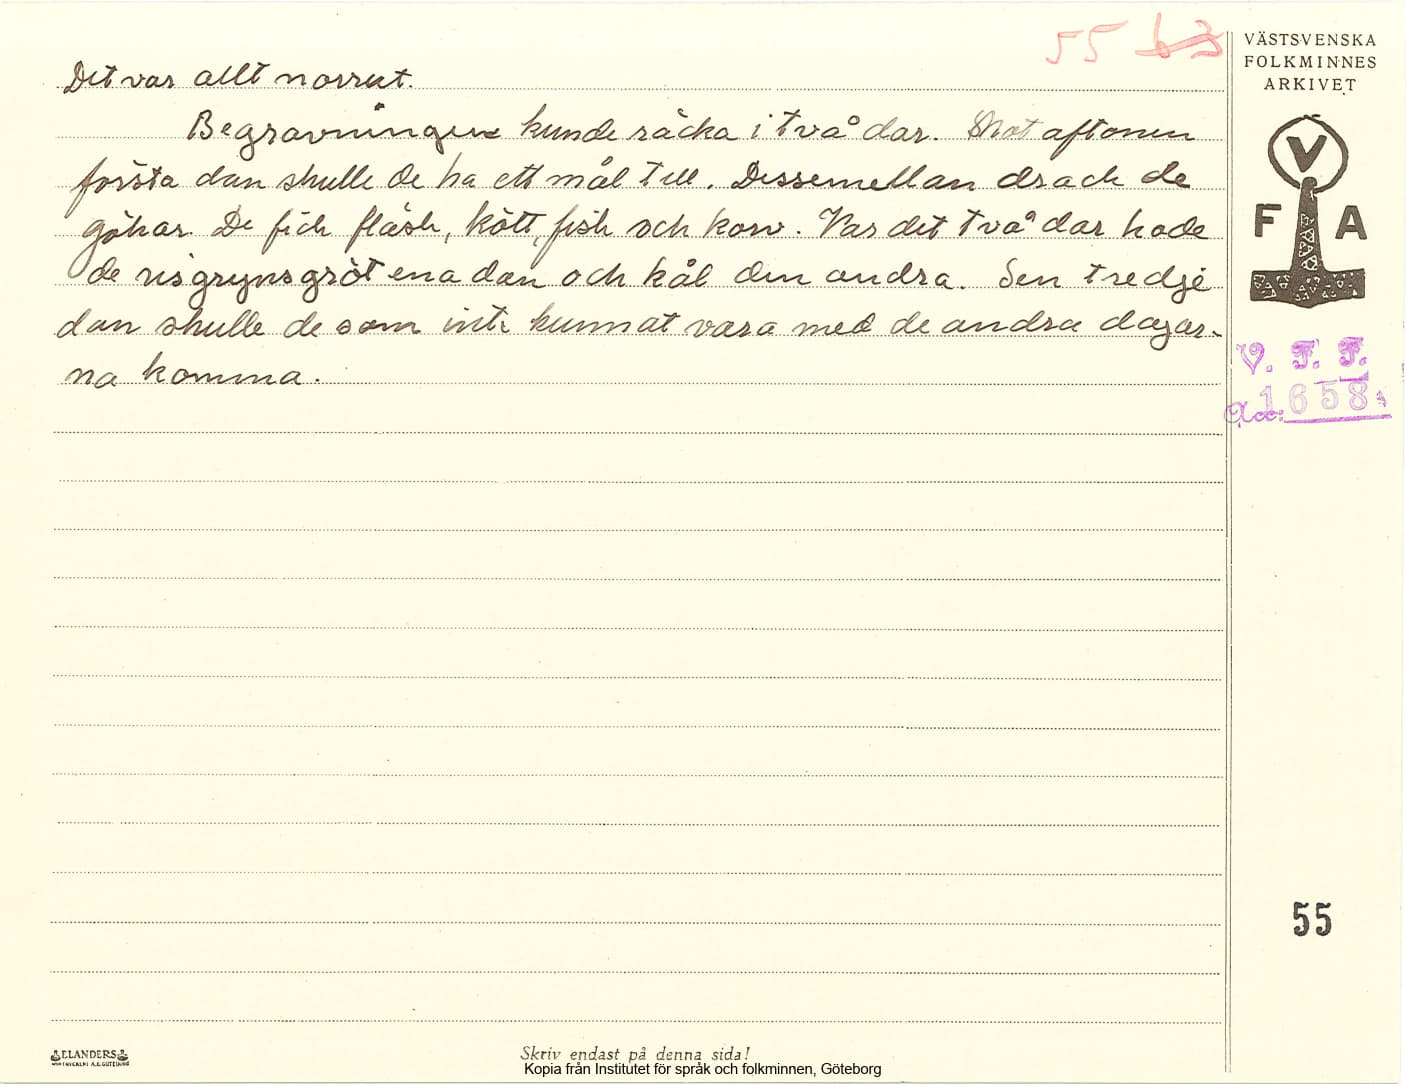 55 63
VÄSTSVENSKA
FOLKMINNES
ARKIVET
Det var allt norrut.
Begravningen kunde räcka i två dar. Mot aftonen
första dan skulle de ha ett mål till. Dessemellan drack de
gökar. De fick fläsk, kött, fisk och korv. Var det två dar hade
de risgrynsgröt ena dan och kål den andra. Sen tredje
dan skulle de som inte kunnat vara med de andra dagar-
na komma.
V
F A
V. F. F.
Acc: 1658
55
ELANDERS
Skriv endast på denna sida!
Kopia från Institutet för språk och folkminnen, Göteborg